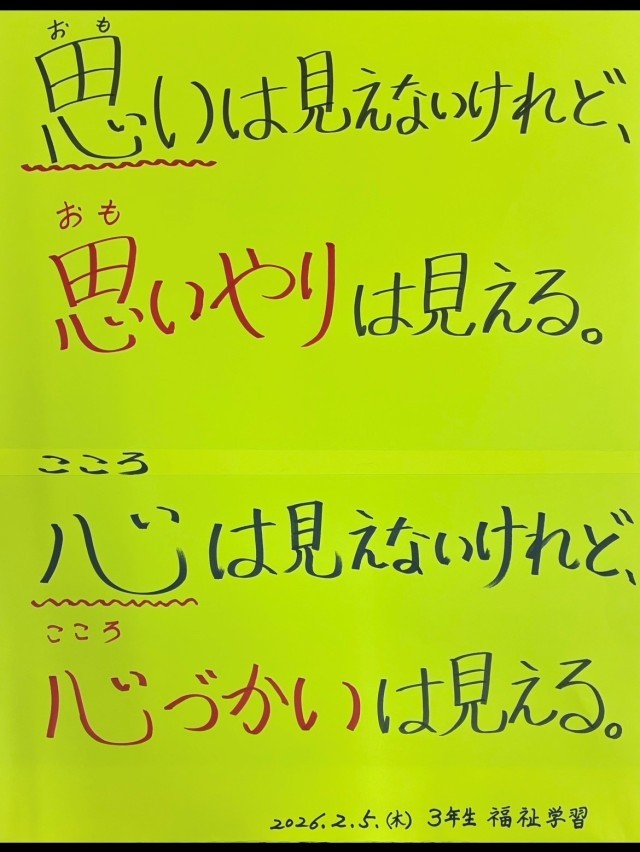 おも
思いは見えないけれど、
おも
思いやりは見える。
こころ
心は見えないけれど、
こころ
心づかいは見える。
2026.2.5.(木) 3年生 福祉学習